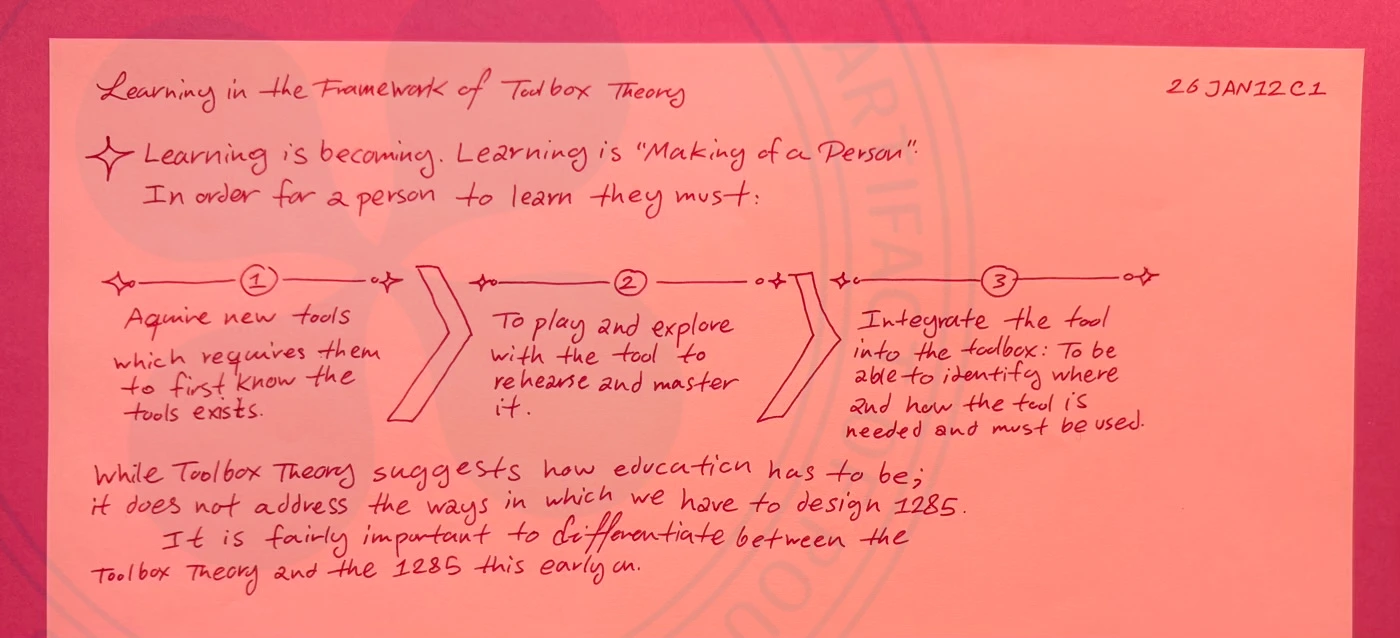 Learning in the Framework of Toolbox Theory
26JAN12C1
Learning is becoming. Learning is "Making of a Person".
In order for a person to learn they must:
1
Aquire new tools
which requires them
to first know the
tools exists.
2
To play and explore
with the tool to
rehearse and master
it.
3
Integrate the tool
into the toolbox: To be
able to identify where
and how the tool is
needed and must be used.
While Toolbox Theory suggests how education has to be;
it does not address the ways in which we have to design 1285.
It is fairly important to differentiate between the
Toolbox Theory and the 1285 this early on.